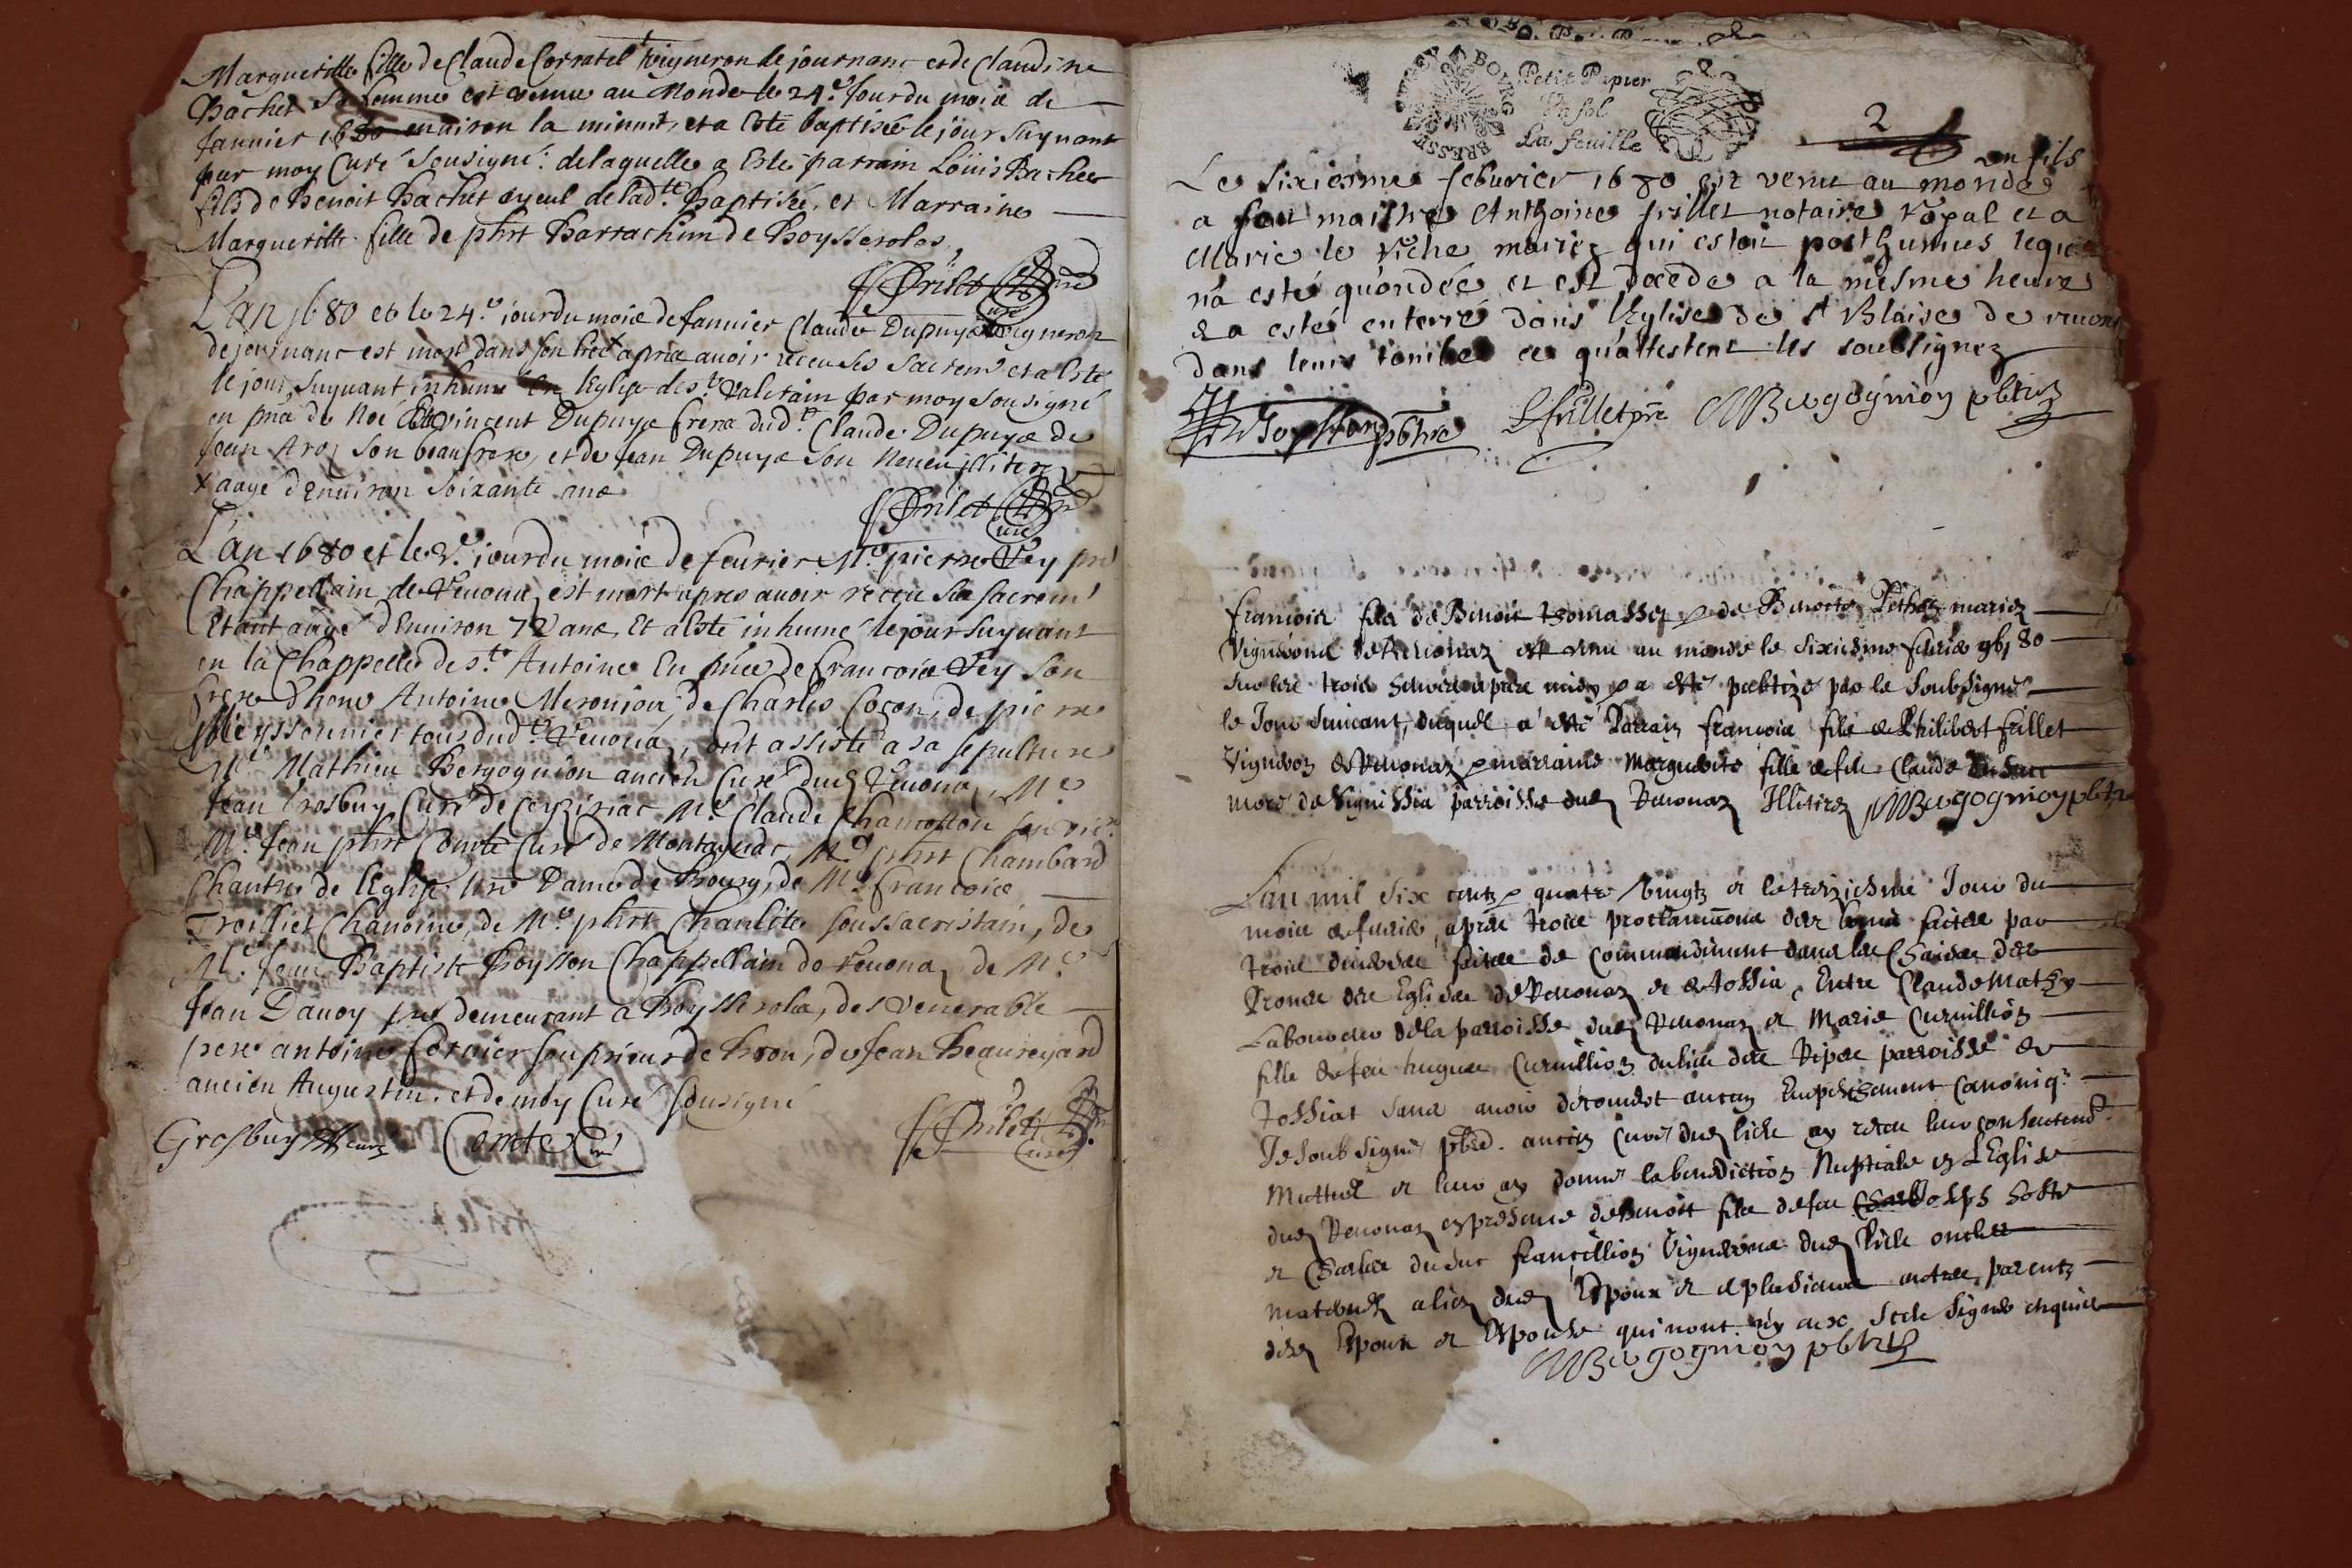 Margueritte fille de Claude Corratel vigneron de journanc et de Claudine
Bachet sa femme est venue au Monde le 24.e Jour du mois de
Januier 1680 enuiron la minuit, et a esté baptisée le jour suyuant
par moy Curé sousigné: de laquelle a esté parrain Loüis Bachet
fils de Benoit Bachet ayeul de lad.te baptisée, et Marraine
Margueritte fille de phrt Barrachin de Boysserolas.
Frilet curé
L'an 1680 et le 24.e jour du mois de Januier Claude Dupuys vigneron
de journanc est mort dans son lict x apres auoir receu ses sacrem.s et a esté
le jour suyuant inhumé en l'Eglise de st. Valerain par moy sousigné
en pñce de Vincent Dupuys frere dud.t Claude Dupuys de
Jean Aroz son beaufrere, et de Jean Dupuys son Neueu illiterez
x aagé d'enuiron soixante ans
Frilet curé
L'an 1680 et le V.e jour du mois de feurier M.e pierre Vey pre
Chappellain de Reuonaz est mort apres auoir receu ses sacrem.t
Etant aagé d'enuiron 72 ans, Et a esté inhumé le jour suyuant
en la Chappelle de s.t Antoine En pñce de francois Vey son
frere d'hone Antoine de Charles Cocon, de pierre
Meyssonnier tous dud.t Reuonaz, ont assisté a sa sepulture
M.e Mathieu Bergognion ancien Curé dud Reuonaz, M.e
Jean Grosbuy Curé de Ceyziriac M.e Claude Chamosson
M.e Jean phrt Comte Curé de Montagnac, M.e phrt Chambard
Chantre de l'Eglise nre Dame de Bourg, de M.e francois
Troilliet Chanoine, de M.e phrt Chanlite soussacristain, de
M.e Jean Baptiste Boysson Chappellain de Reuonaz de M.e
Jean Dauoy pre demeurant a Boysserolas, des venerable
pere antoine fornier souprieur de Brou, de Jean Beauregard
ancien Augustin, et de moy Curé sousigné
Grosbuy Comte Curé Frilet curé
Petit Papier
Vn sol
La feuille
BOURG
BRESSE
2
un fils
Le sixiesme feburier 1680 est venu au monde
a feu maistre Anthoine frillet notaire royal et a
Marie le Riche mariez qui estoit posthumus lequel
n'a esté quondée et est decede a la mesme heure
& a esté enterré dans l'Eglise de st Blaise de
dans leurs tombe ce qu'attestent les soubsignez
Boysson pbtre Frillet pre MBergognion pbtre
francois fils de Benoit thomasset & de Benoite mariez
Vignerons de Reuonaz est venu au monde le sixiesme feurier 1680
sur les trois heures apres midy & a esté baptizé par le soubsigné
le Jour suiuant, duquel a esté Parrain francois fils de Philibert frillet
Vigneron de Reuonaz & marraine Marguerite fille de feu Claude
parroisse dud Reuonaz Illitirez MBergognion pbtre
L'an mil six centz & quatre vingtz et le treiziesme Jour du
mois de feurier, apres trois proclamãons des bans faites par
trois diuerses festes de commandement dans les Chaires des
Prones des Eglises de Reuonaz et de Jossia, Entre Claude Mathy
Laboureur de la parroisse dud Reuonaz et Marie Curuillion
fille de feu hugues Curuillion du lieu des Ripes parroisse de
Jossiat sans auoir decouuert aucun Empeschement Canoniq.
Je soubsigné pbre. ancien curé dud lieu ay receu leur consentem.t
Muttuel et leur ay donné la benediction Nuptiale en L'Eglise
dud Reuonaz en presence de Benoist fils de feu
et Charles du Suc francillion Vignerons dud lieu oncles
maternelz dud Espoux et de plusieurs autres parentz
desd Espoux et Espouse qui n'ont ny eux sceu signer enquis
MBergognion pbtre